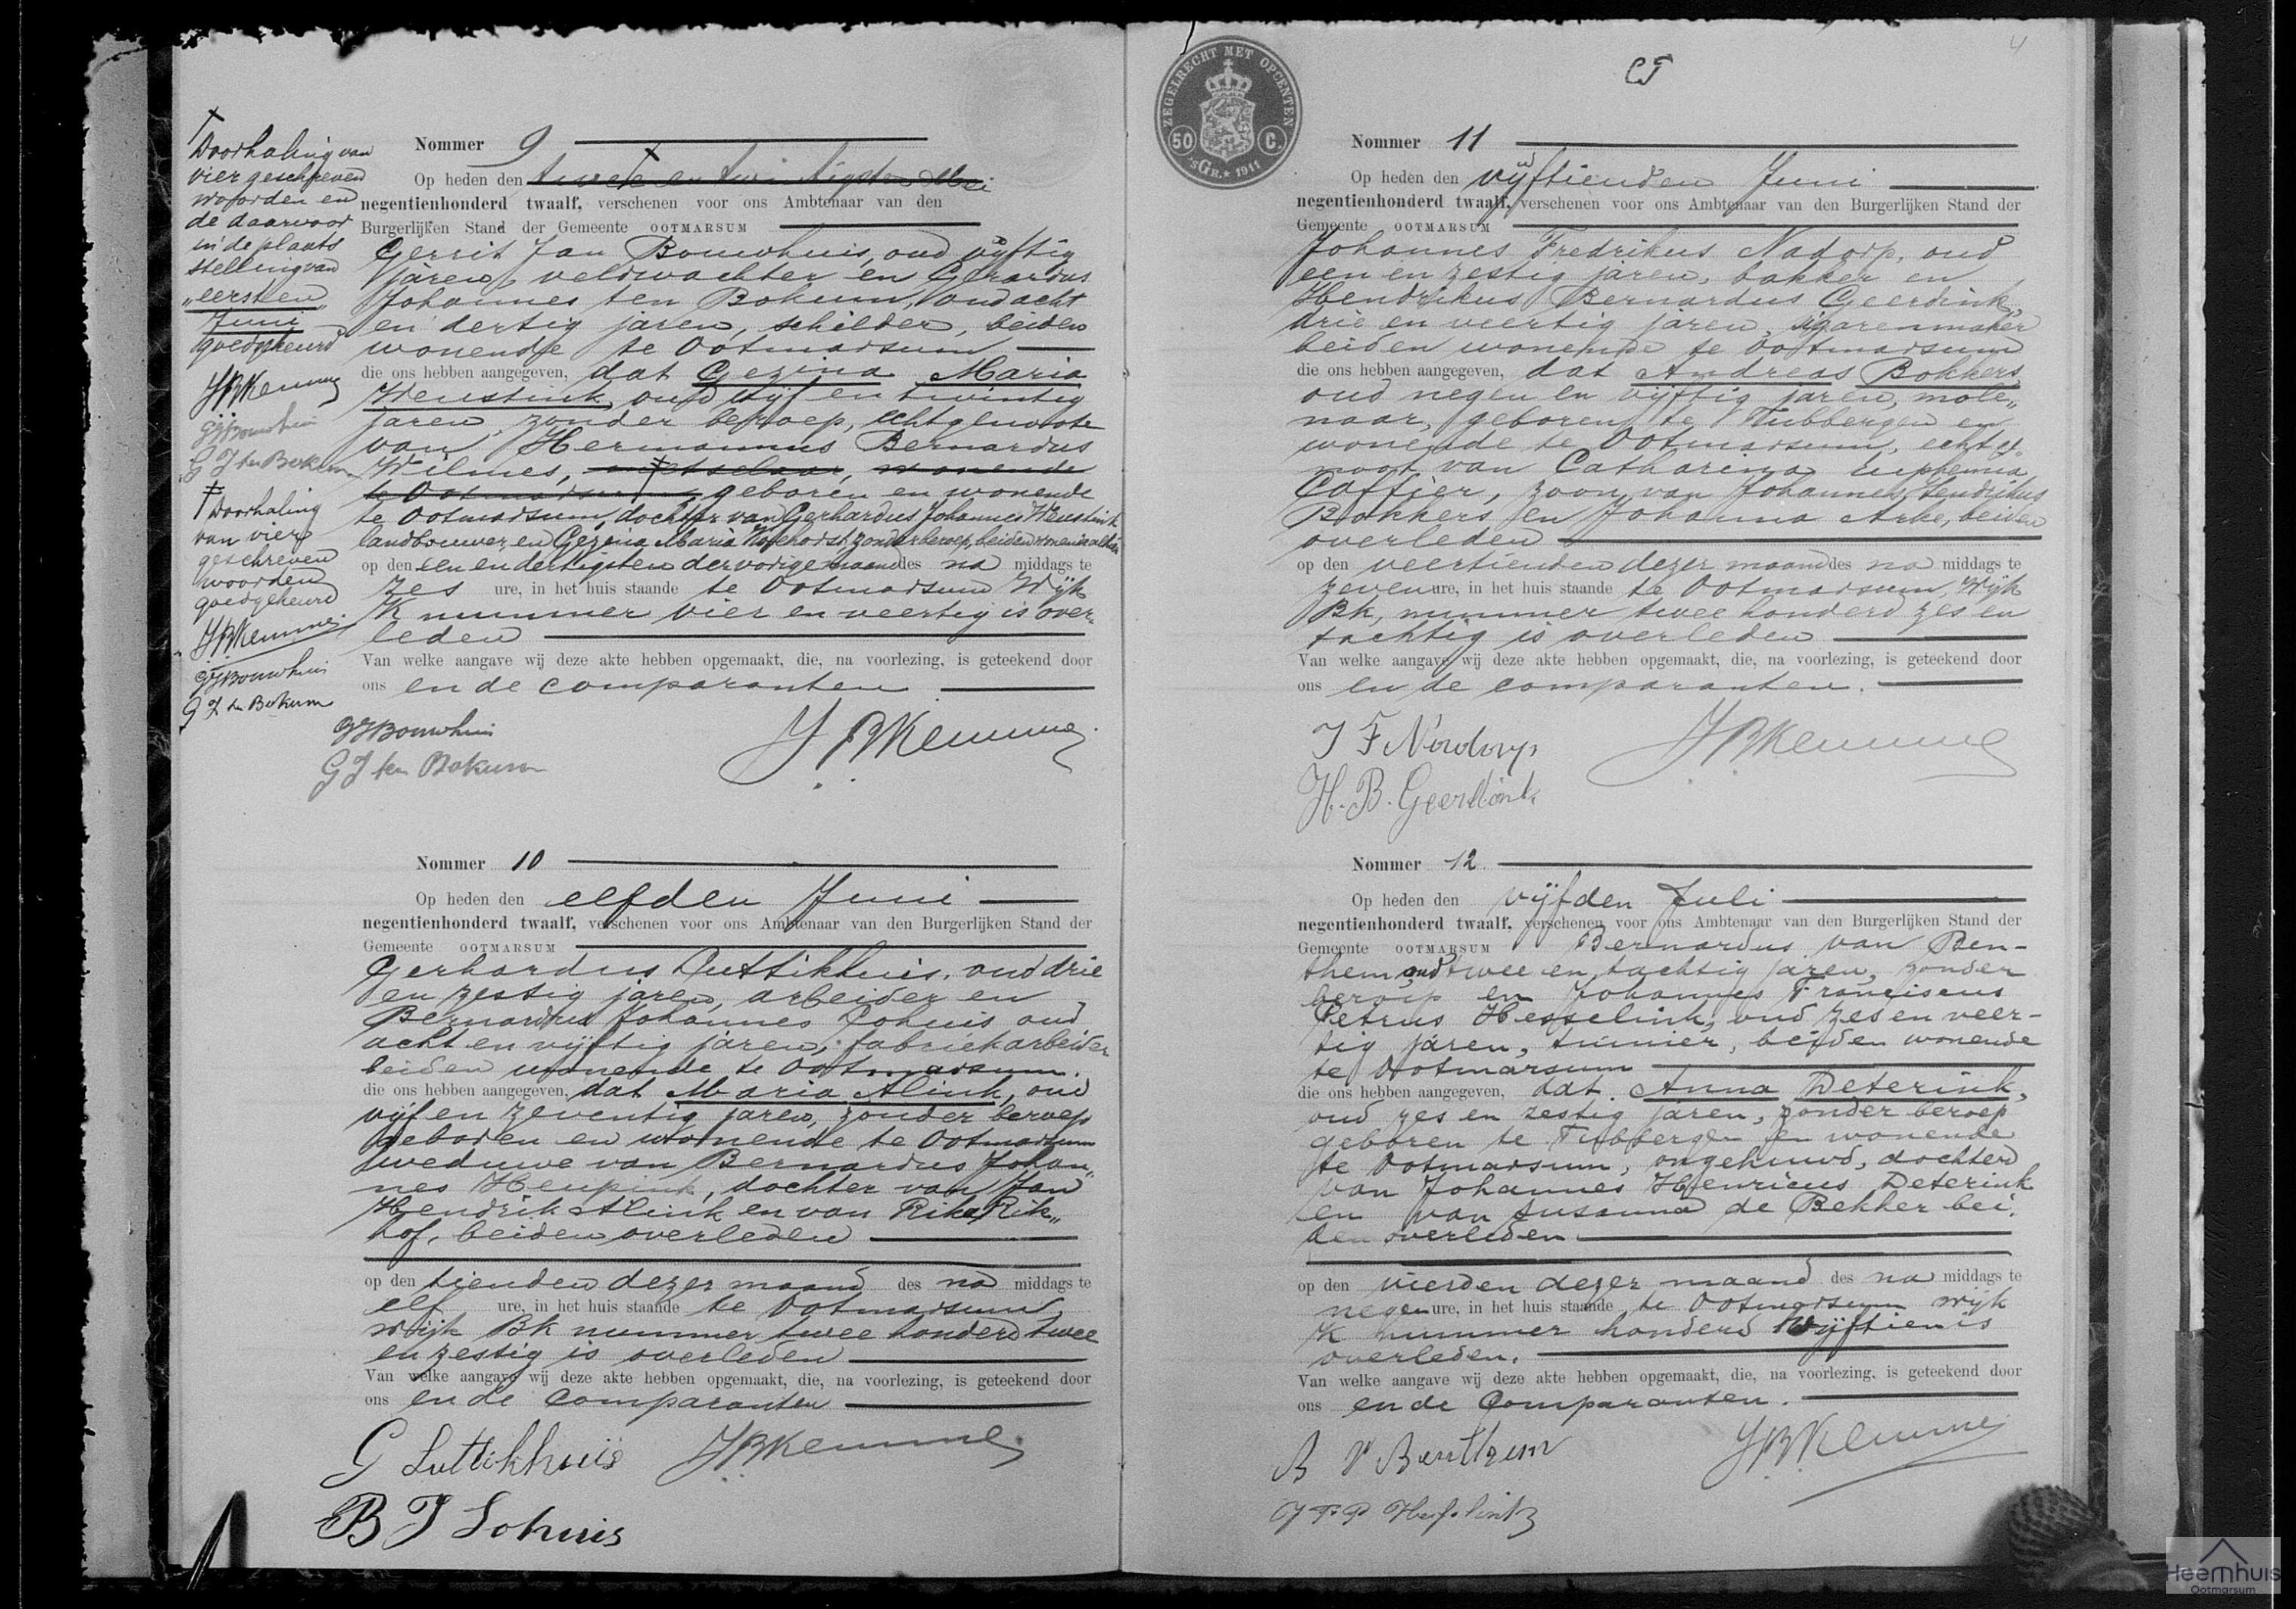 Doorhaling van
vier geschreven
woorden en
de daarvoor
in de plaats
stelling van
„eersten
Juni"
goedgekeurd
JBKemme
GJBouwhuis
G J ten Bokum
Doorhaling
van vier
geschreven
woorden
goedgekeurd
JBKemme
GJBouwhuis
G J ten Bokum
Nommer 9
Op heden den twee en twintigsten Mei
negentienhonderd twaalf, verschenen voor ons Ambtenaar van den
Burgerlijken Stand der Gemeente OOTMARSUM
Gerrit Jan Bouwhuis, oud vijftig
jaren, veldwachter en Gerardus
Johannes ten Bokum, oud acht
en dertig jaren, schilder, beiden
wonende te Ootmarsum
die ons hebben aangegeven, dat Gezina Maria
Weustink, oud vijf en twintig
jaren, zonder beroep, echtgenoote
van Hermannus Bernardus
Wilmes, metselaar, wonende
te Ootmarsum geboren en wonende
te Ootmarsum, dochter van Gerhardus Johannes Weustink
landbouwer, en Gezina Maria zonder beroep, beiden wonende alhier
op den een en dertigsten der vorige maand des na middags te
zes ure, in het huis staande te Ootmarsum Wijk
K nummer vier en veertig is over-
leden
Van welke aangave wij deze akte hebben opgemaakt, die, na voorlezing, is geteekend door
ons en de comparanten
GJBouwhuis
G J ten Bokum
JBKemme
Nommer 10
Op heden den elfden Juni
negentienhonderd twaalf, verschenen voor ons Ambtenaar van den Burgerlijken Stand der
Gemeente OOTMARSUM
Gerhardus Luttikhuis, oud drie
en zestig jaren, arbeider en
Bernardus Johannes Lohuis oud
acht en vijftig jaren, fabriekarbeider
beiden wonende te Ootmarsum.
die ons hebben aangegeven, dat Maria Alink, oud
vijf en zeventig jaren, zonder beroep
geboren en wonende te Ootmarsum
weduwe van Bernardus Johan„
nes Heupink, dochter van Jan
Hendrik Alink en van Rika Rik„
hof, beiden overleden
op den tienden dezer maand des na middags te
elf ure, in het huis staande te Ootmarsum,
wijk BK nummer twee honderd twee
en zestig is overleden
Van welke aangave wij deze akte hebben opgemaakt, die, na voorlezing, is geteekend door
ons en de comparanten
G Luttikhuis
JBKemme
B J Lohuis
4
ZEGELRECHT MET OPCENTEN
50 C.
'sGR. 1911
Nommer 11
Op heden den vijftienden Juni
negentienhonderd twaalf, verschenen voor ons Ambtenaar van den Burgerlijken Stand der
Gemeente OOTMARSUM
Johannes Fredrikus Nadorp, oud
een en zestig jaren, bakker en
Hendrikus Bernardus Geerdink,
drie en veertig jaren, sigarenmaker
beiden wonende te Ootmarsum
die ons hebben aangegeven, dat Andreas Bokkers,
oud negen en vijftig jaren, mole„
naar, geboren te Tubbergen en
wonende te Ootmarsum, echtge„
noot van Catharina Euphemia
Coffier, zoon van Johannes Hendrikus
Bokkers en Johanna Arke, beiden
overleden
op den veertienden dezer maand des na middags te
zeven ure, in het huis staande te Ootmarsum, Wijk
BK, nummer twee honderd zes en
tachtig is overleden
Van welke aangave wij deze akte hebben opgemaakt, die, na voorlezing, is geteekend door
ons en de comparanten.
J F Nadorp
JBKemme
H. B. Geerdink
Nommer 12
Op heden den vijfden Juli
negentienhonderd twaalf, verschenen voor ons Ambtenaar van den Burgerlijken Stand der
Gemeente OOTMARSUM Bernardus van Ben-
them, oud twee en tachtig jaren, zonder
beroep en Johannes Franciscus
Petrus Hesselink, oud zes en veer-
tig jaren, timmer, beiden wonende
te Ootmarsum
die ons hebben aangegeven, dat Anna Deterink,
oud zes en zestig jaren, zonder beroep
geboren te Tubbergen en wonende
te Ootmarsum, ongehuwd, dochter
van Johannes Henricus Deterink
en van Susanna de Bekker bei„
den overleden
op den vierden dezer maand des na middags te
negen ure, in het huis staande te Ootmarsum wijk
K nummer honderd vijftien is
overleden.
Van welke aangave wij deze akte hebben opgemaakt, die, na voorlezing, is geteekend door
ons en de Comparanten.
B V Benthem
JBKemme
J F P Hesselink
Heemhuis
Ootmarsum